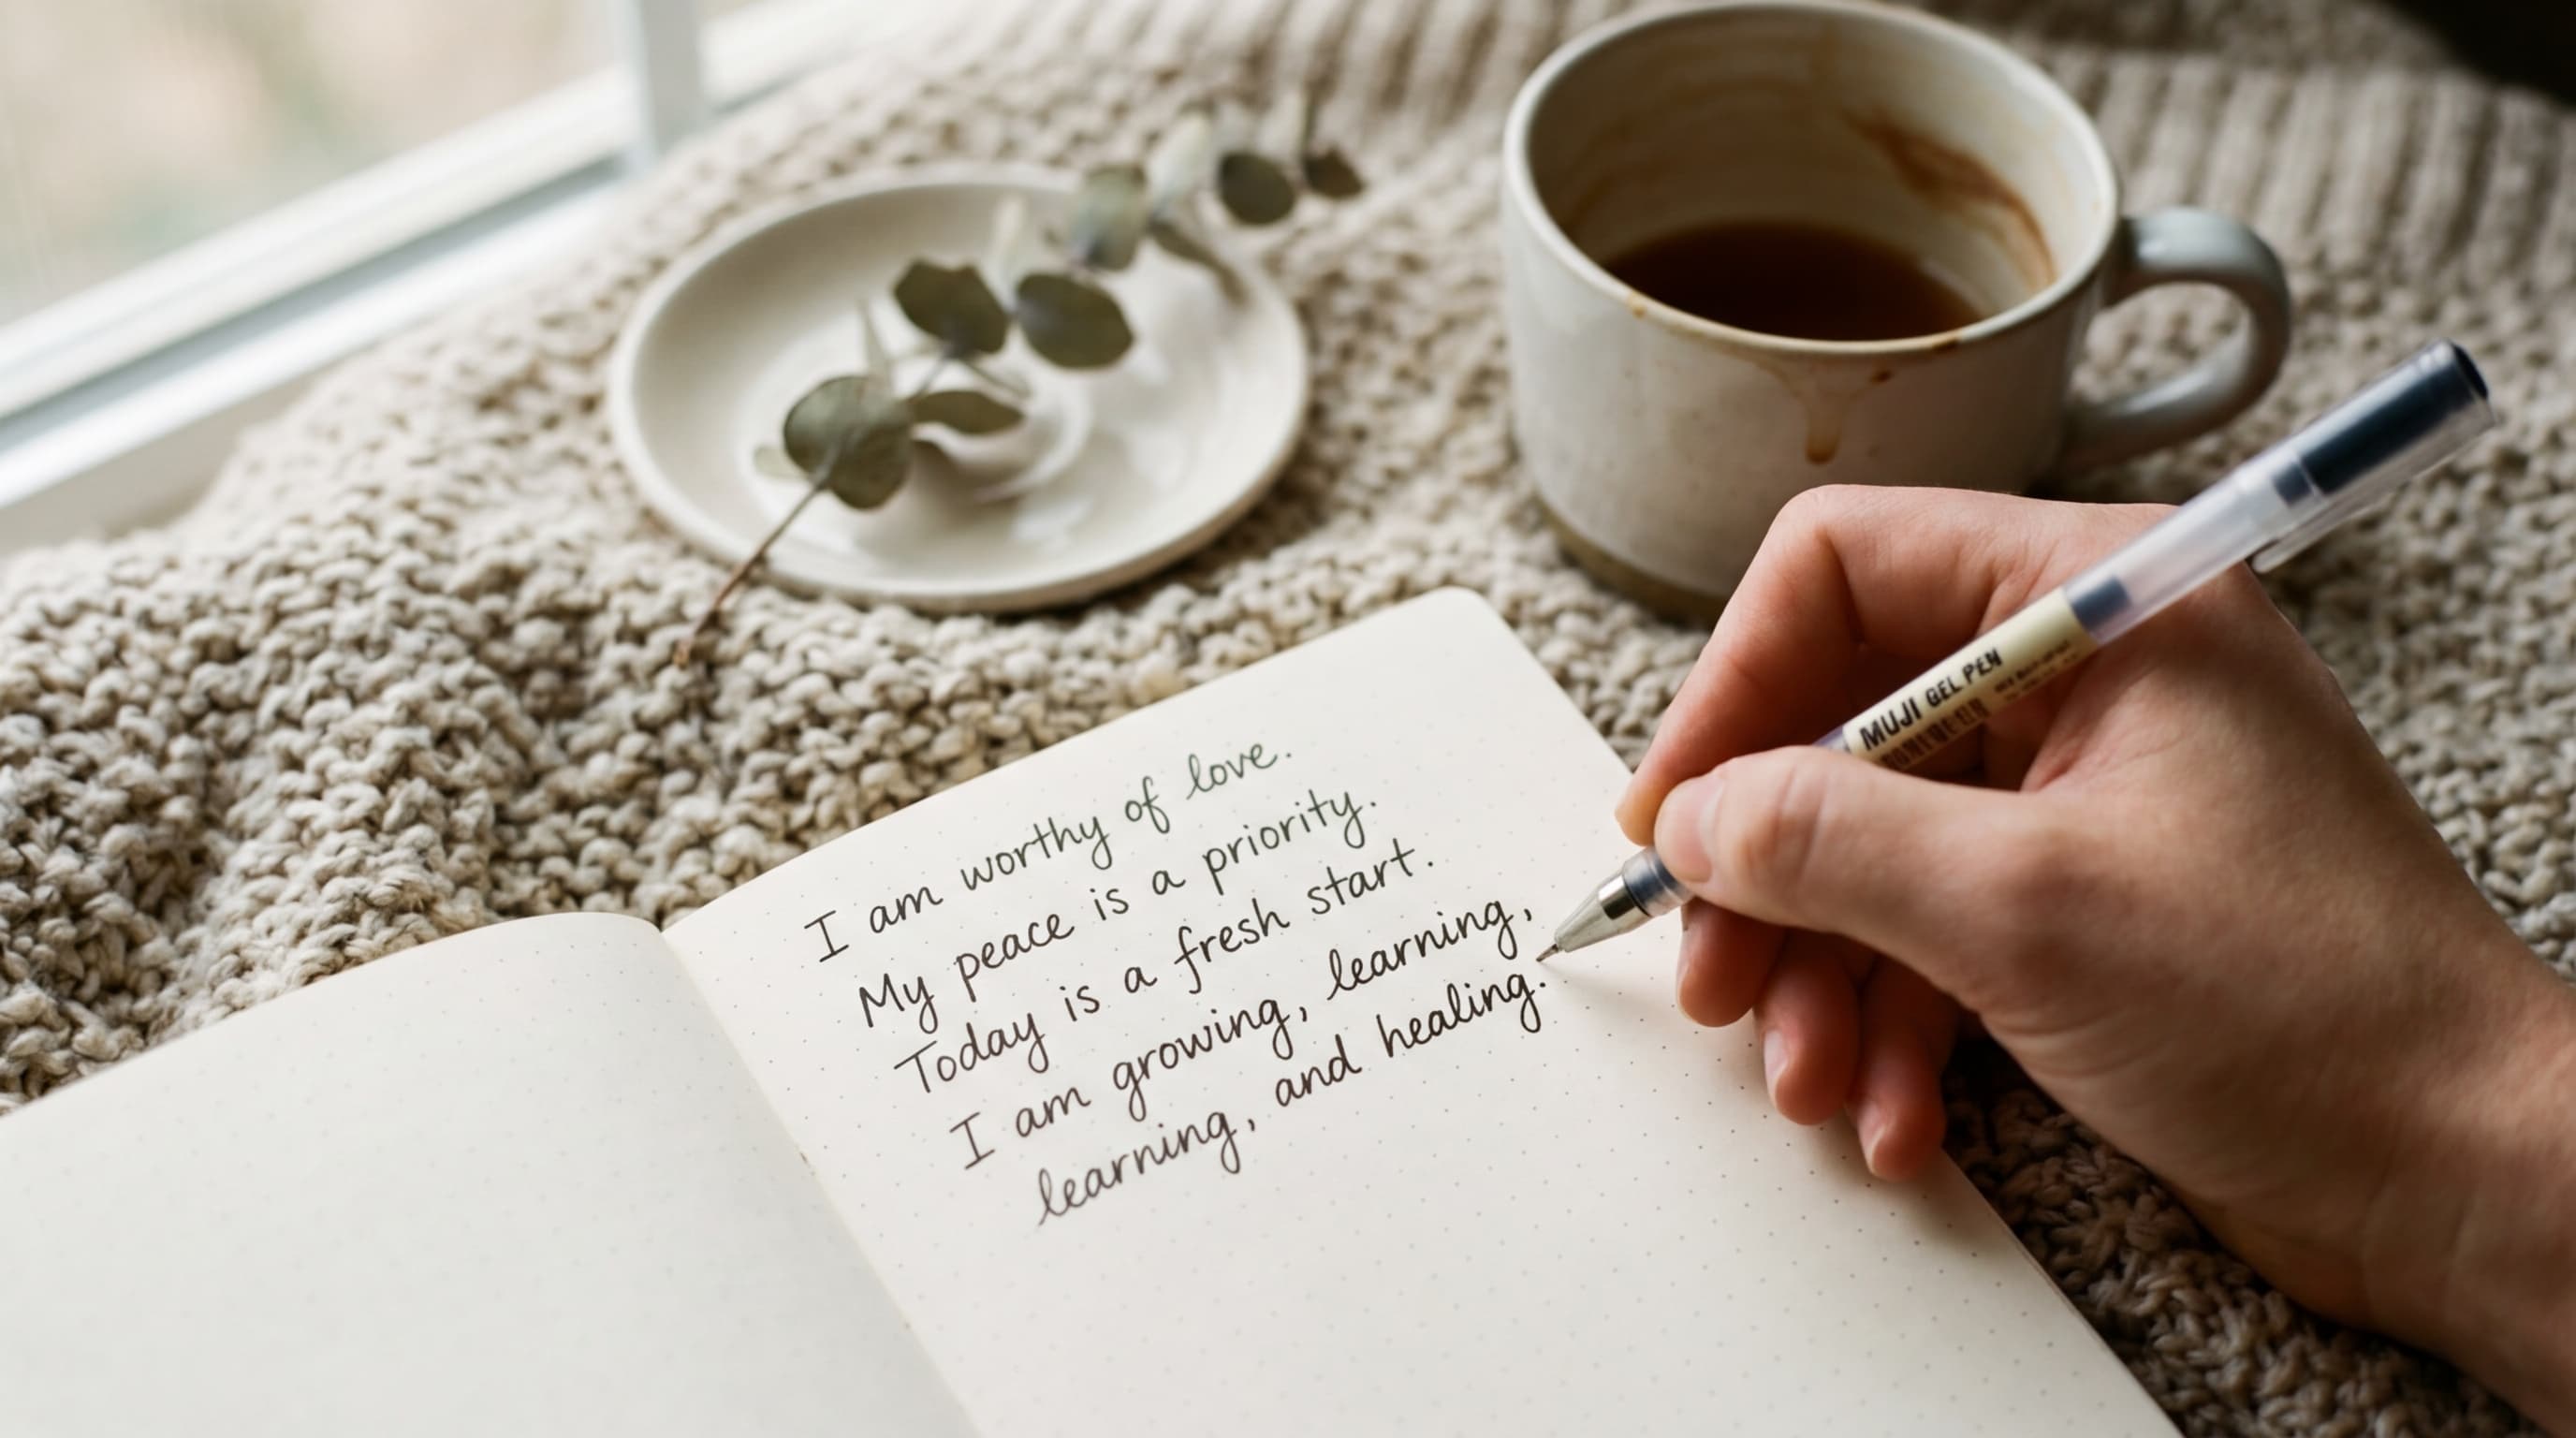 I am worthy of love.
My peace is a priority.
Today is a fresh start.
I am growing, learning,
learning, and healing.
MUJI GEL PEN